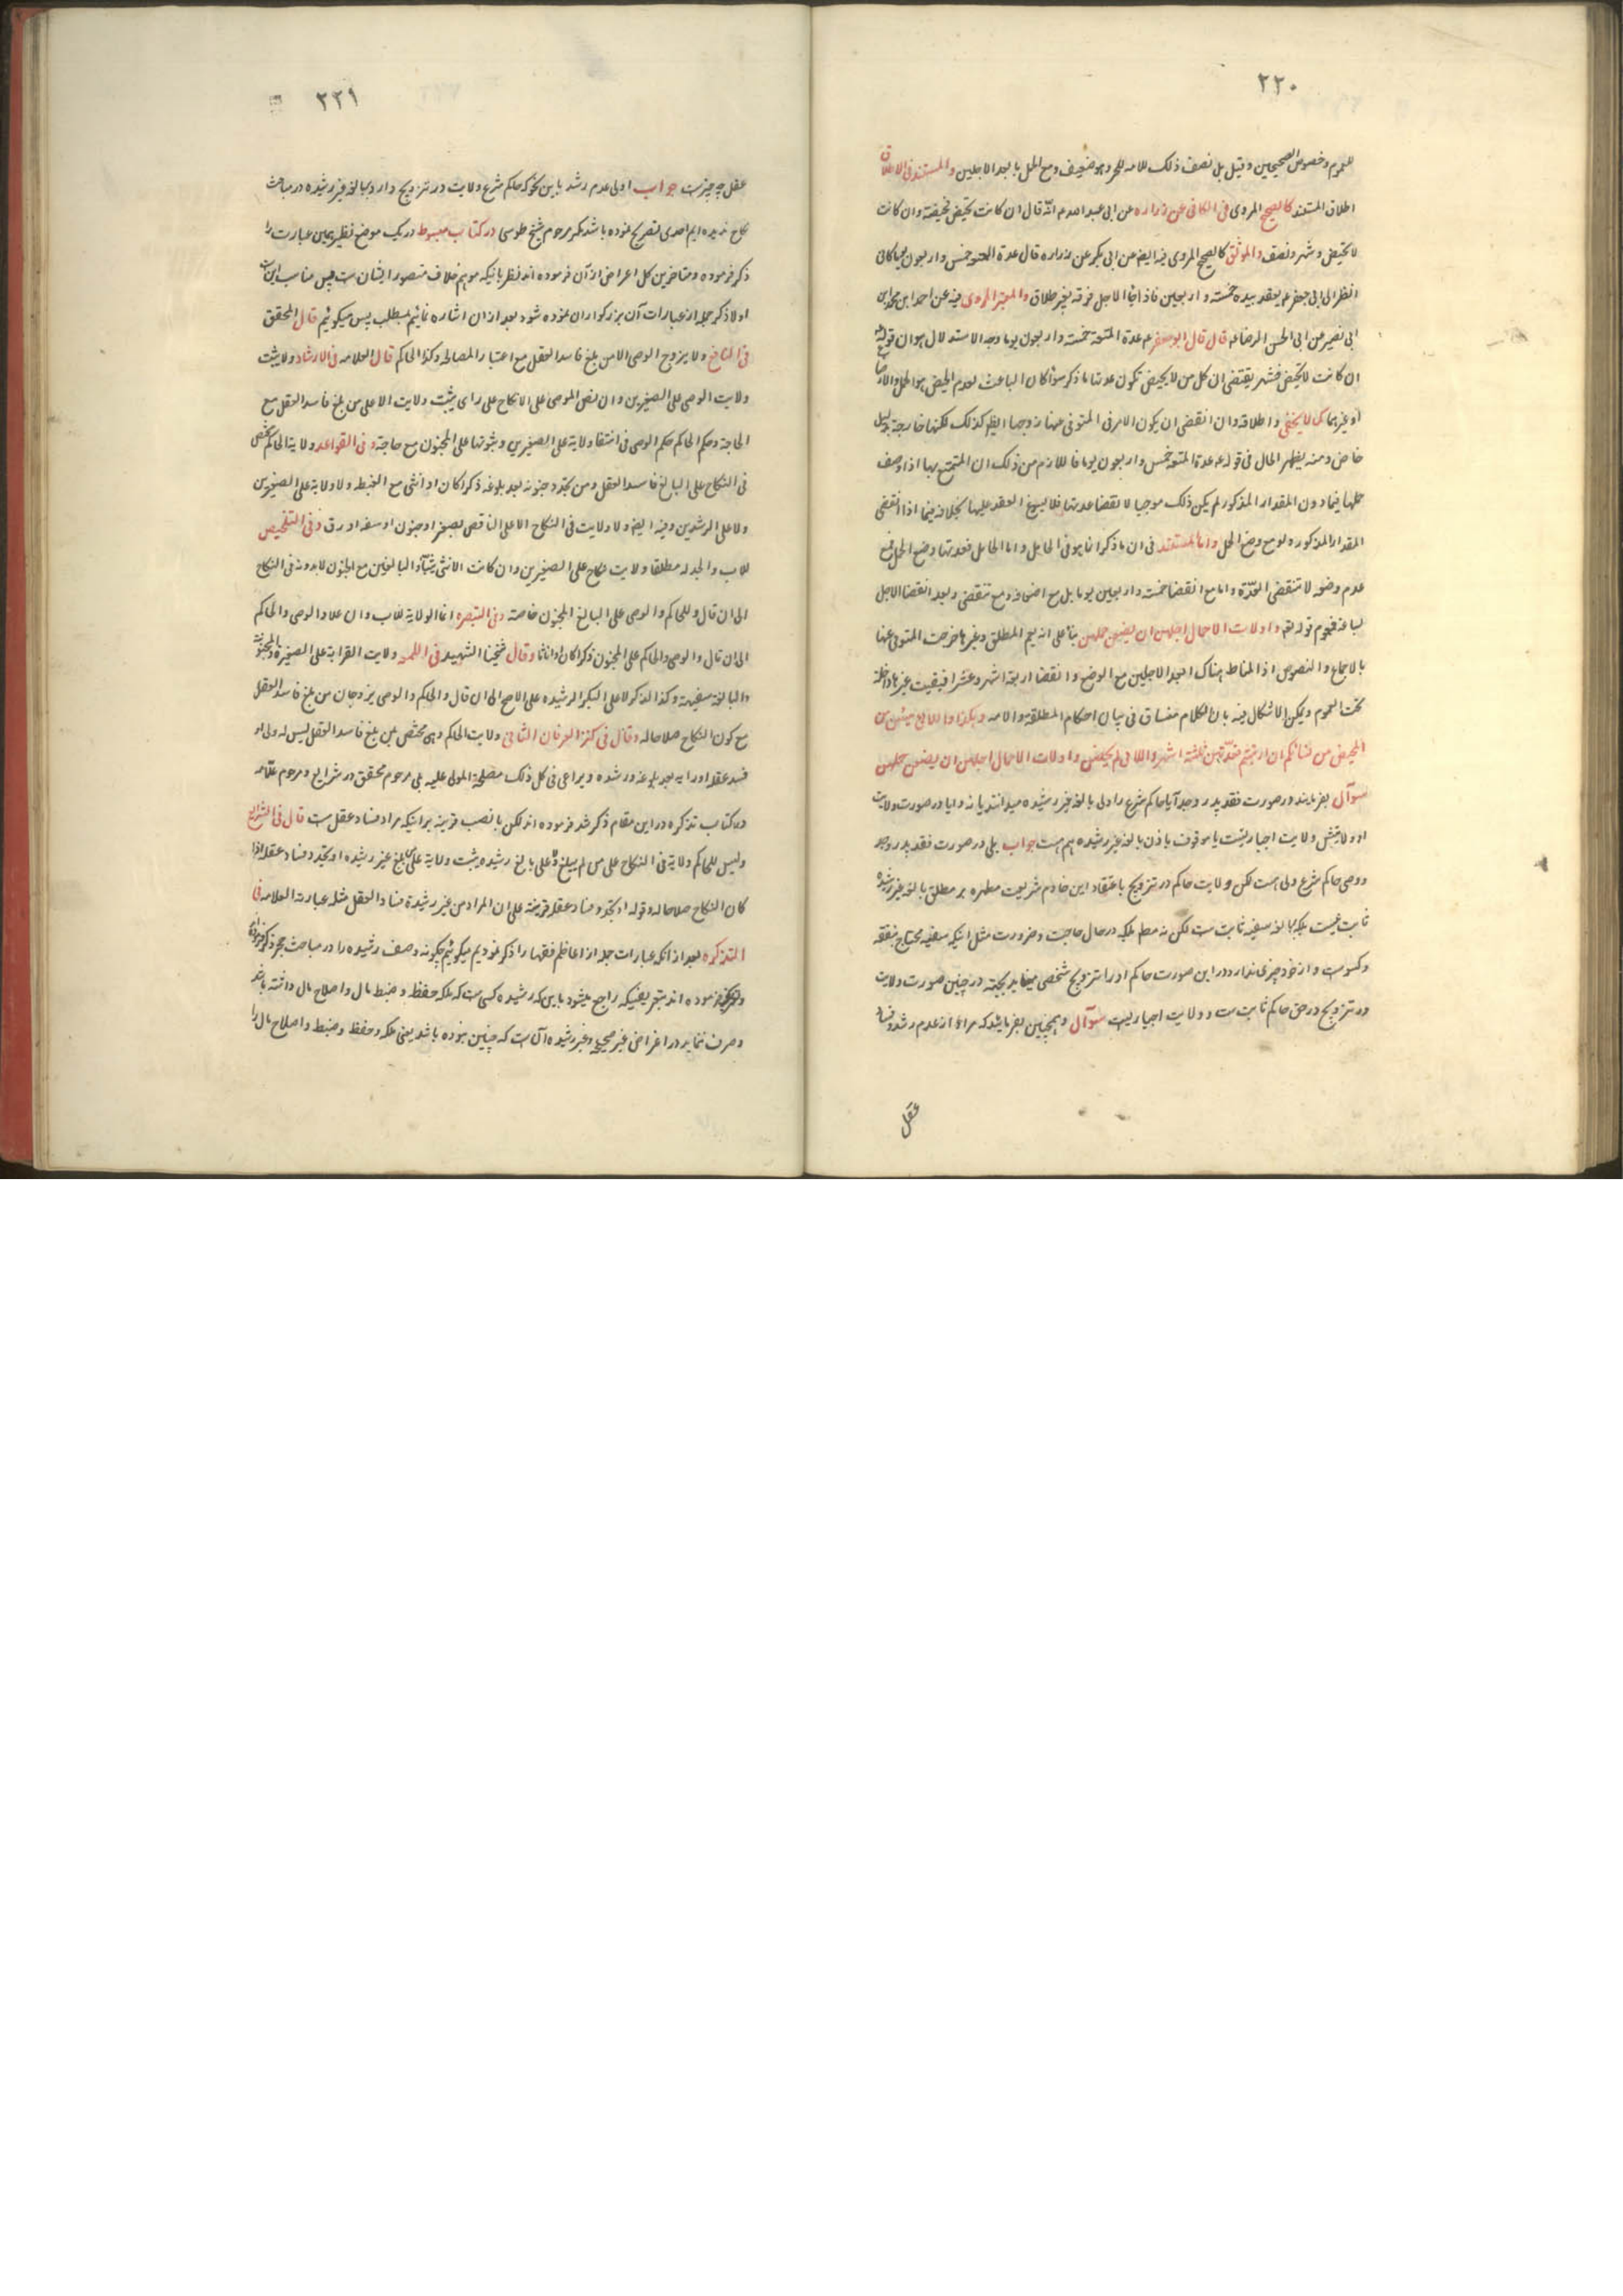 ٢٢٠
للعموم وخصوص الصحيحين وقيل بل نصف ذلك للامه للخبر وهو ضعيف ومع الحمل بابعد الاجلين والمستند فى الاطلاق
اطلاق المستند كالصحيح المروى فى الكافى عن زراره عن ابى عبد الله ع انه قال ان كانت تحيض فحيضة وان كانت
لا تحيض فشهر ونصف والموثق كالصحيح المروى فيه ايضا عن ابى بكير عن زراره قال عدة المتعة خمس واربعون يوما كانى
انظر الى ابى جعفر ع يعقد بيده خمسة واربعين فاذا جاز الاجل فرقة بغير طلاق والمعتبر المروى فيه عن احمد ابن محمد ابن
ابى نصير عن ابى الحسن الرضا ع قال قال ابو جعفر ع عدة المتعة خمسة واربعون يوما وجه الاستدلال هو ان قوله
ان كانت لا تحيض فشهر يقتضى ان كل من لا يحيض تكون عدتها ما ذكر سواء كان الباعث لعدم الحيض هو الحمل والارضاع
او غيرهما كما لا يخفى واطلاقه وان اقتضى ان يكون الامر فى المتوفى عنها زوجها ايضا كذلك لكنها خارجة بدليل
خاص ومنه يظهر الحال فى قوله ع عدة المتعة خمس واربعون يوما فاللازم من ذلك ان المتمتع بها اذا وضعت
حملها فيما دون المقدار المذكور لم يكن ذلك موجبا لانقضا عدتها فلا يسوغ العقد عليها بخلافه فيما اذا انقضى
المقدار المذكوره لو مع وضع الحمل واما المستند فى ان ما ذكر انما هو فى الحايل واما الحامل فعدتها وضع الحمل فمع
عدم وضعه لا تنقضى العدة واما مع انقضا خمسة واربعين يوما بل مع اضعافه ومع تنقضى ولبعد انقضا الاجل
لساعة فعموم قوله تعه واولات الاحمال اجلهن ان يضعن حملهن بناء على انه يعم المطلق وغيرها خرجت المتوفى عنها
بالاجماع والنصوص اذا المناط هناك ابعد الاجلين مع الوضع وانقضا اربعة اشهر وعشرا فبقيت غيرها داخلة
تحت العموم ويمكن الاشكال فيه بان الكلام منساق فى بيان احكام المطلقه والامه وهكذا واللائى يئسن من
المحيض من نسائكم ان ارتبتم فعدتهن ثلثة اشهر واللائى لم يحضن واولات الاحمال اجلهن ان يضعن حملهن
سؤال بفرمايند در صورت فقد پدر وجد آيا حاكم شرع را ولى بالغه غير رشيده ميدانند يا نه وايا در صورت ولايت
او ولايتش ولايت اجباريست يا موقوف باذن بالغه غير رشيده هم هست جواب بلى در صورت فقد پدر وجد
ووصى حاكم شرع ولى است لكن ولايت حاكم در تزويج باعتقاد اين خادم شريعت مطهره بر مطلق بالغه غير رشيده
ثابت نيست بلكه بالغه سفيه ثابت ست لكن نه مطم بلكه در حال حاجت وضرورت مثل انيكه سفيه محتاج بنفقه
وكسوت و از خود چيزى ندارد در اين صورت حاكم او را تزويج شخصى مينمايد بجهته در چنين صورت ولايت
در تزويج در حق حاكم ثابت ست و ولايت اجباريست سؤال وهمچنين بفرمايند كه مراد از عدم رشد وفساد
عقل
٢٢١
عقل چه چيزست جواب اولى عدم رشد باين نحو كه حاكم شرع ولايت در تزويج دارد ببالغه غير رشيده در مباحث
نكاح نديده ايم احدى تصريح نموده باشد مگر مرحوم شيخ طوسى در كتاب مبسوط در يك موضع نظير همين عبارت را
ذكر فرموده ومتاخرين كل اعراض از آن فرموده اند نظر بانيكه موهم خلاف مقصود ايشان ست پس مناسب اينست
اولا ذكر جمله از عبارات آن بزرگواران نموده شود بعد از ان اشاره نمائيم بمطلب پس ميگوئيم قال المحقق
فى النافع ولا يزوج الوصى الا من بلغ فاسد العقل مع اعتبار المصلحه وكذا الحاكم قال العلامه فى الارشاد ولا يثبت
ولايت الوصى على الصغيرين وان نص الموصى على الانكاح على راى يثبت ولايت الا على من بلغ فاسد العقل مع
الحاجة وحكم الحاكم حكم الوصى فى انتفا ولاية على الصغيرين وثبوتها على المجنون مع حاجة وفى القواعد ولاية الحاكم تختص
فى النكاح على البالغ فاسد العقل ومن تجدد جنونه بعد بلوغه ذكرا كان او انثى مع الغبطه ولا ولاية على الصغيرين
ولا على الرشدين وفيه ايضا ولا ولايت فى النكاح الا على الناقص بصغر او جنون او سفه او رق وفى التلخيص
للاب والجد له مطلقا ولايت نكاح على الصغيرين وان كانت الانثى ثيبا والبالغين مع الجنون لا بدونه فى النكاح
الى ان قال وللحاكم والوصى على البالغ المجنون خاصة وفى التبصره انما الولاية للاب وان علا والوصى والحاكم
الى ان قال والوصى والحاكم على المجنون ذكرا كان او اناثا وقال شيخنا الشهيد فى اللمعه ولايت القرابة على الصغيرة والمجنونة
والبالغة سفيهة وكذا الذكر لا على البكر الرشيده على الاصح الى ان قال والحاكم والوصى يزوجان من بلغ فاسد العقل
مع كون النكاح صلاحا له وقال فى كنز العرفان الثانى ولايت الحاكم وهى مختص بمن بلغ فاسد العقل ليس له ولى او
فسد عقله او رايه بعد بلوغه ورشده ويراعى فى كل ذلك مصلحة المولى عليه بلى مرحوم محقق در شرايع ومرحوم علامه
در كتاب تذكره در اين مقام ذكر شد فرموده اند لكن با نصب قرينه بر انيكه مراد فساد عقل ست قال فى الشرايع
وليس للحاكم ولاية فى النكاح على من لم يبلغ ولا على بالغ رشيد ويثبت ولاية على من بلغ غير رشيد او تجدد فساد عقله اذا
كان النكاح صلاحا له وقوله او تجدد فساد عقله قرينة على ان المراد من غير رشيدة فساد العقل مثله عبارت العلامه فى
التذكره بعد از انكه عبارات جمله از اعاظم فقها را ذكر نموديم ميگوئيم چگونه وصف رشيده را در مباحث حجر ذكر فرموده
فرموده اند بتعريفيكه راجع ميشود باين كه رشيده كسى ست كه ملكه حفظ وضبط مال واصلاح مال داشته باشد
وصرف ننمايد در اغراض غير صحيحه وغير رشيده آن ست كه چنين نبوده باشد يعنى ملكه وحفظ وضبط واصلاح مال را